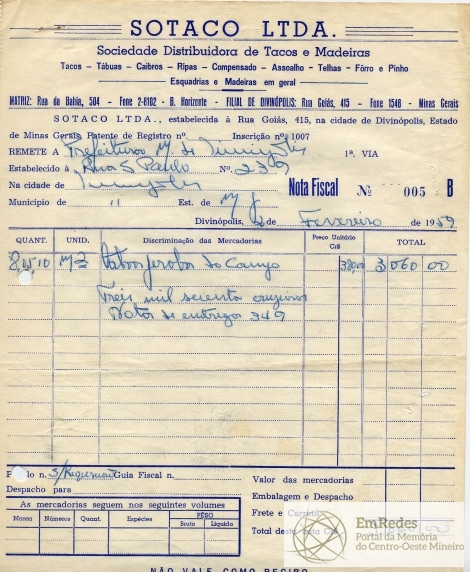 SOTACO LTDA.
Sociedade Distribuidora de Tacos e Madeiras
Tacos - Tábuas - Caibros - Ripas - Compensado - Assoalho - Telhas - Fôrro e Pinho
Esquadrias e Madeiras em geral
MATRIZ: Rua da Bahia, 504 - Fone 2-6102 - B. Horizonte - FILIAL DE DIVINÓPOLIS: Rua Goiás, 415 - Foxe 1548 - Minas Gerais
SOTACO LTDA., estabelecida à Rua Goiás, 415, na cidade de Divinópolis, Estado
de Minas Gerais Patente de Registro nº. Inscrição nº 1007
REMETE A Prefeitura M. de 1ª. VIA
Estabelecido à Rua S Paulo Nº. 239
Na cidade de Nota Fiscal Nº 005 B
Município de 11 Est. de M g
Divinópolis, 2 de Fevereiro de 1959
QUANT. UNID. Discriminação das Mercadorias Preço Unitário Cr$ TOTAL
M2 do Campo 3 060 00
Treis mil secenta cruzeiros
Nota de entrega 349
Pedido n. S/Requisição Guia Fiscal n.
Despacho para
As mercadorias seguem nos seguintes volumes
Marca Números Quant. Espécies PÊSO Bruto Líquido
Valor das mercadorias
Embalagem e Despacho
Frete e Carreto
Total desta nota Cr$
EmRedes
Portal da Memória
do Centro-Oeste Mineiro
NÃO VALE COMO RECIBO